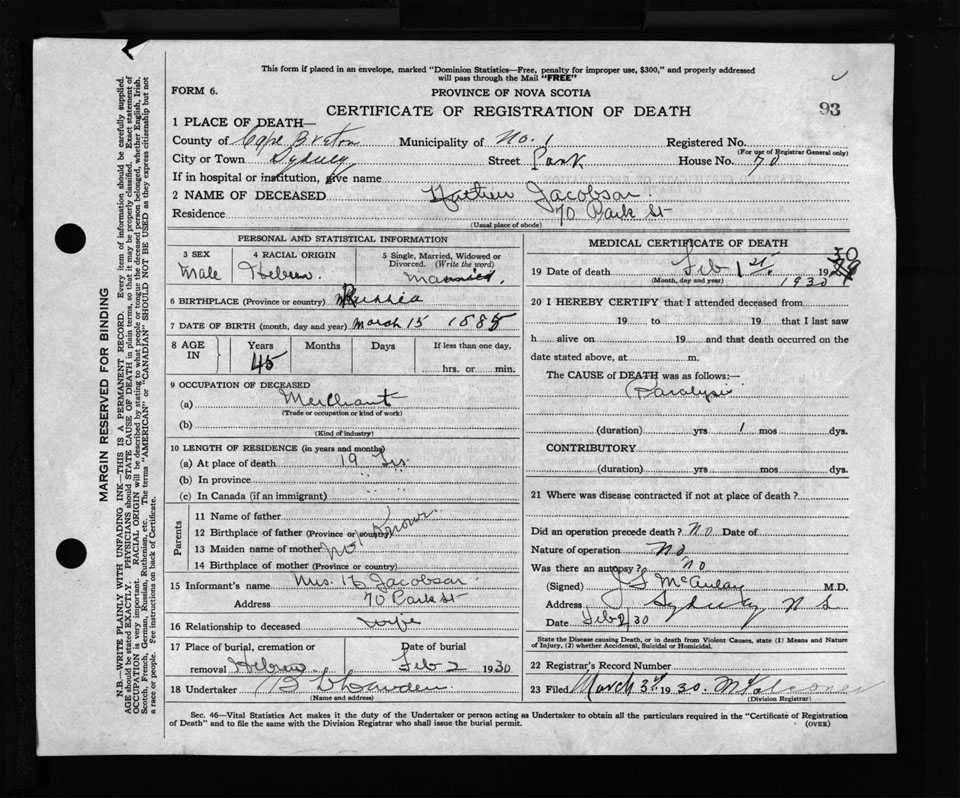 This form if placed in an envelope, marked "Dominion Statistics—Free, penalty for improper use, $300," and properly addressed
will pass through the Mail "FREE"
FORM 6.
PROVINCE OF NOVA SCOTIA
93
CERTIFICATE OF REGISTRATION OF DEATH
1 PLACE OF DEATH—
County of Cape Breton Municipality of No. 1 Registered No.
(For use of Registrar General only)
City or Town Sydney Street Park House No. 70
If in hospital or institution, give name
2 NAME OF DECEASED Jacobson
Residence 70 Park St
(Usual place of abode)
PERSONAL AND STATISTICAL INFORMATION
3 SEX Male
4 RACIAL ORIGIN Hebrew.
5 Single, Married, Widowed or
Divorced. (Write the word)
Married.
6 BIRTHPLACE (Province or country) Russia
7 DATE OF BIRTH (month, day and year) March 15 1885
8 AGE IN Years Months Days If less than one day,
45 hrs. or min.
9 OCCUPATION OF DECEASED
(a) Merchant
(Trade or occupation or kind of work)
(b)
(Kind of industry)
10 LENGTH OF RESIDENCE (in years and months)
(a) At place of death 19 Yrs
(b) In province " "
(c) In Canada (if an immigrant) " "
Parents
11 Name of father
12 Birthplace of father (Province or country)
13 Maiden name of mother
14 Birthplace of mother (Province or country)
Not Known
15 Informant's name Mrs. H Jacobson
Address 70 Park St
16 Relationship to deceased wife
17 Place of burial, cremation or Date of burial
removal Hebrew Feb 2 1930
18 Undertaker
(Name and address)
MEDICAL CERTIFICATE OF DEATH
19 Date of death Feb 1st 1930
(Month, day and year)
20 I HEREBY CERTIFY that I attended deceased from
19 to 19 that I last saw
h alive on 19 and that death occurred on the
date stated above, at m.
The CAUSE of DEATH was as follows:—
Paralysis
(duration) yrs 1 mos dys.
CONTRIBUTORY
(duration) yrs mos dys.
21 Where was disease contracted if not at place of death?
Did an operation precede death? No Date of
Nature of operation No
Was there an autopsy? no
(Signed) McAulay M.D.
Address Sydney N S
Date Feb 2 30
State the Disease causing Death, or in death from Violent Causes, state (1) Means and Nature
of Injury, (2) whether Accidental, Suicidal or Homicidal.
22 Registrar's Record Number
23 Filed March 3rd 1930.
(Division Registrar)
Sec. 46—Vital Statistics Act makes it the duty of the Undertaker or person acting as Undertaker to obtain all the particulars required in the "Certificate of Registration
of Death" and to file the same with the Division Registrar who shall issue the burial permit. (OVER)
MARGIN RESERVED FOR BINDING
N.B.—WRITE PLAINLY WITH UNFADING INK—THIS IS A PERMANENT RECORD. Every item of information should be carefully supplied.
AGE should be stated EXACTLY. PHYSICIANS should STATE CAUSE OF DEATH in plain terms, so that it may be properly classified. Exact statement of
OCCUPATION is very important. RACIAL ORIGIN will be described by stating to what people or tongue the deceased person belonged, whether English, Irish,
Scotch, French, German, Russian, Ruthenian, etc. The terms "AMERICAN" or "CANADIAN" SHOULD NOT BE USED as they express citizenship but not
a race or people. See instructions on back of Certificate.